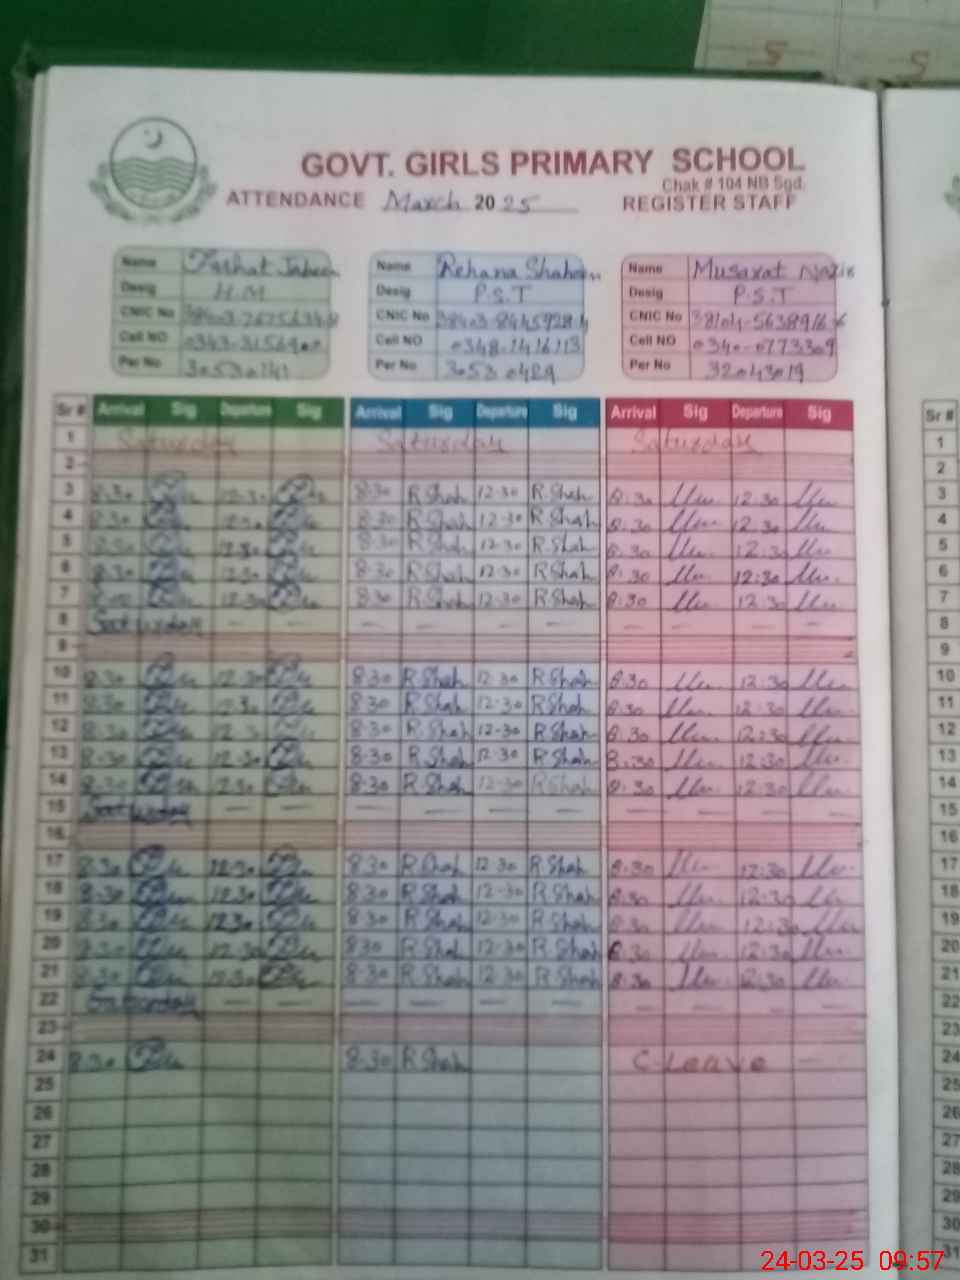 GOVT. GIRLS PRIMARY SCHOOL
Chak # 104 NB Sgd.
ATTENDANCE March 2025 REGISTER STAFF
Name Name Rehana Shaheen Name Musarat
Desig H.M Desig P.S.T Desig P.S.T
CNIC No CNIC No CNIC No
Cell NO Cell NO 0348-1416113 Cell NO 0340-0773309
Per No 30530141 Per No 30530429 Per No 32043019
Sr # Arrival Sig Departure Sig Arrival Sig Departure Sig Arrival Sig Departure Sig Sr #
1 Saturday Saturday Saturday 1
2 2
3 8:30 12:30 8:30 R Shah 12-30 R Shah 8:30 12:30 3
4 8:30 12:30 8:30 R Shah 12-30 R Shah 8:30 12:30 4
5 8:30 12:30 8:30 R Shah 12-30 R Shah 8:30 12:30 5
6 8:30 12:30 8:30 R Shah 12-30 R Shah 8:30 12:30 6
7 12:30 8:30 R Shah 12-30 R Shah 8:30 12:30 7
8 Saturday — — — — — — — — — — 8
9 9
10 8:30 12:30 8:30 R Shah 12-30 R Shah 8:30 12:30 10
11 8:30 12:30 8:30 R Shah 12-30 R Shah 8:30 12:30 11
12 8:30 12:30 8:30 R Shah 12-30 R Shah 8:30 12:30 12
13 8:30 12:30 8:30 R Shah 12-30 R Shah 8:30 12:30 13
14 8:30 12:30 8:30 R Shah 12-30 R Shah 8:30 12:30 14
15 Saturday — — — — — — — — — — 15
16 16
17 8:30 12:30 8:30 R Shah 12-30 R Shah 8:30 12:30 17
18 8:30 12:30 8:30 R Shah 12-30 R Shah 8:30 12:30 18
19 8:30 12:30 8:30 R Shah 12-30 R Shah 8:30 12:30 19
20 8:30 12:30 8:30 R Shah 12-30 R Shah 8:30 12:30 20
21 8:30 12:30 8:30 R Shah 12-30 R Shah 8:30 12:30 21
22 Saturday — — — — — — — — — — 22
23 23
24 8:30 8:30 R Shah C-Leave — 24
25 25
26 26
27 27
28 28
29 29
30 30
31 31
24-03-25 09:57